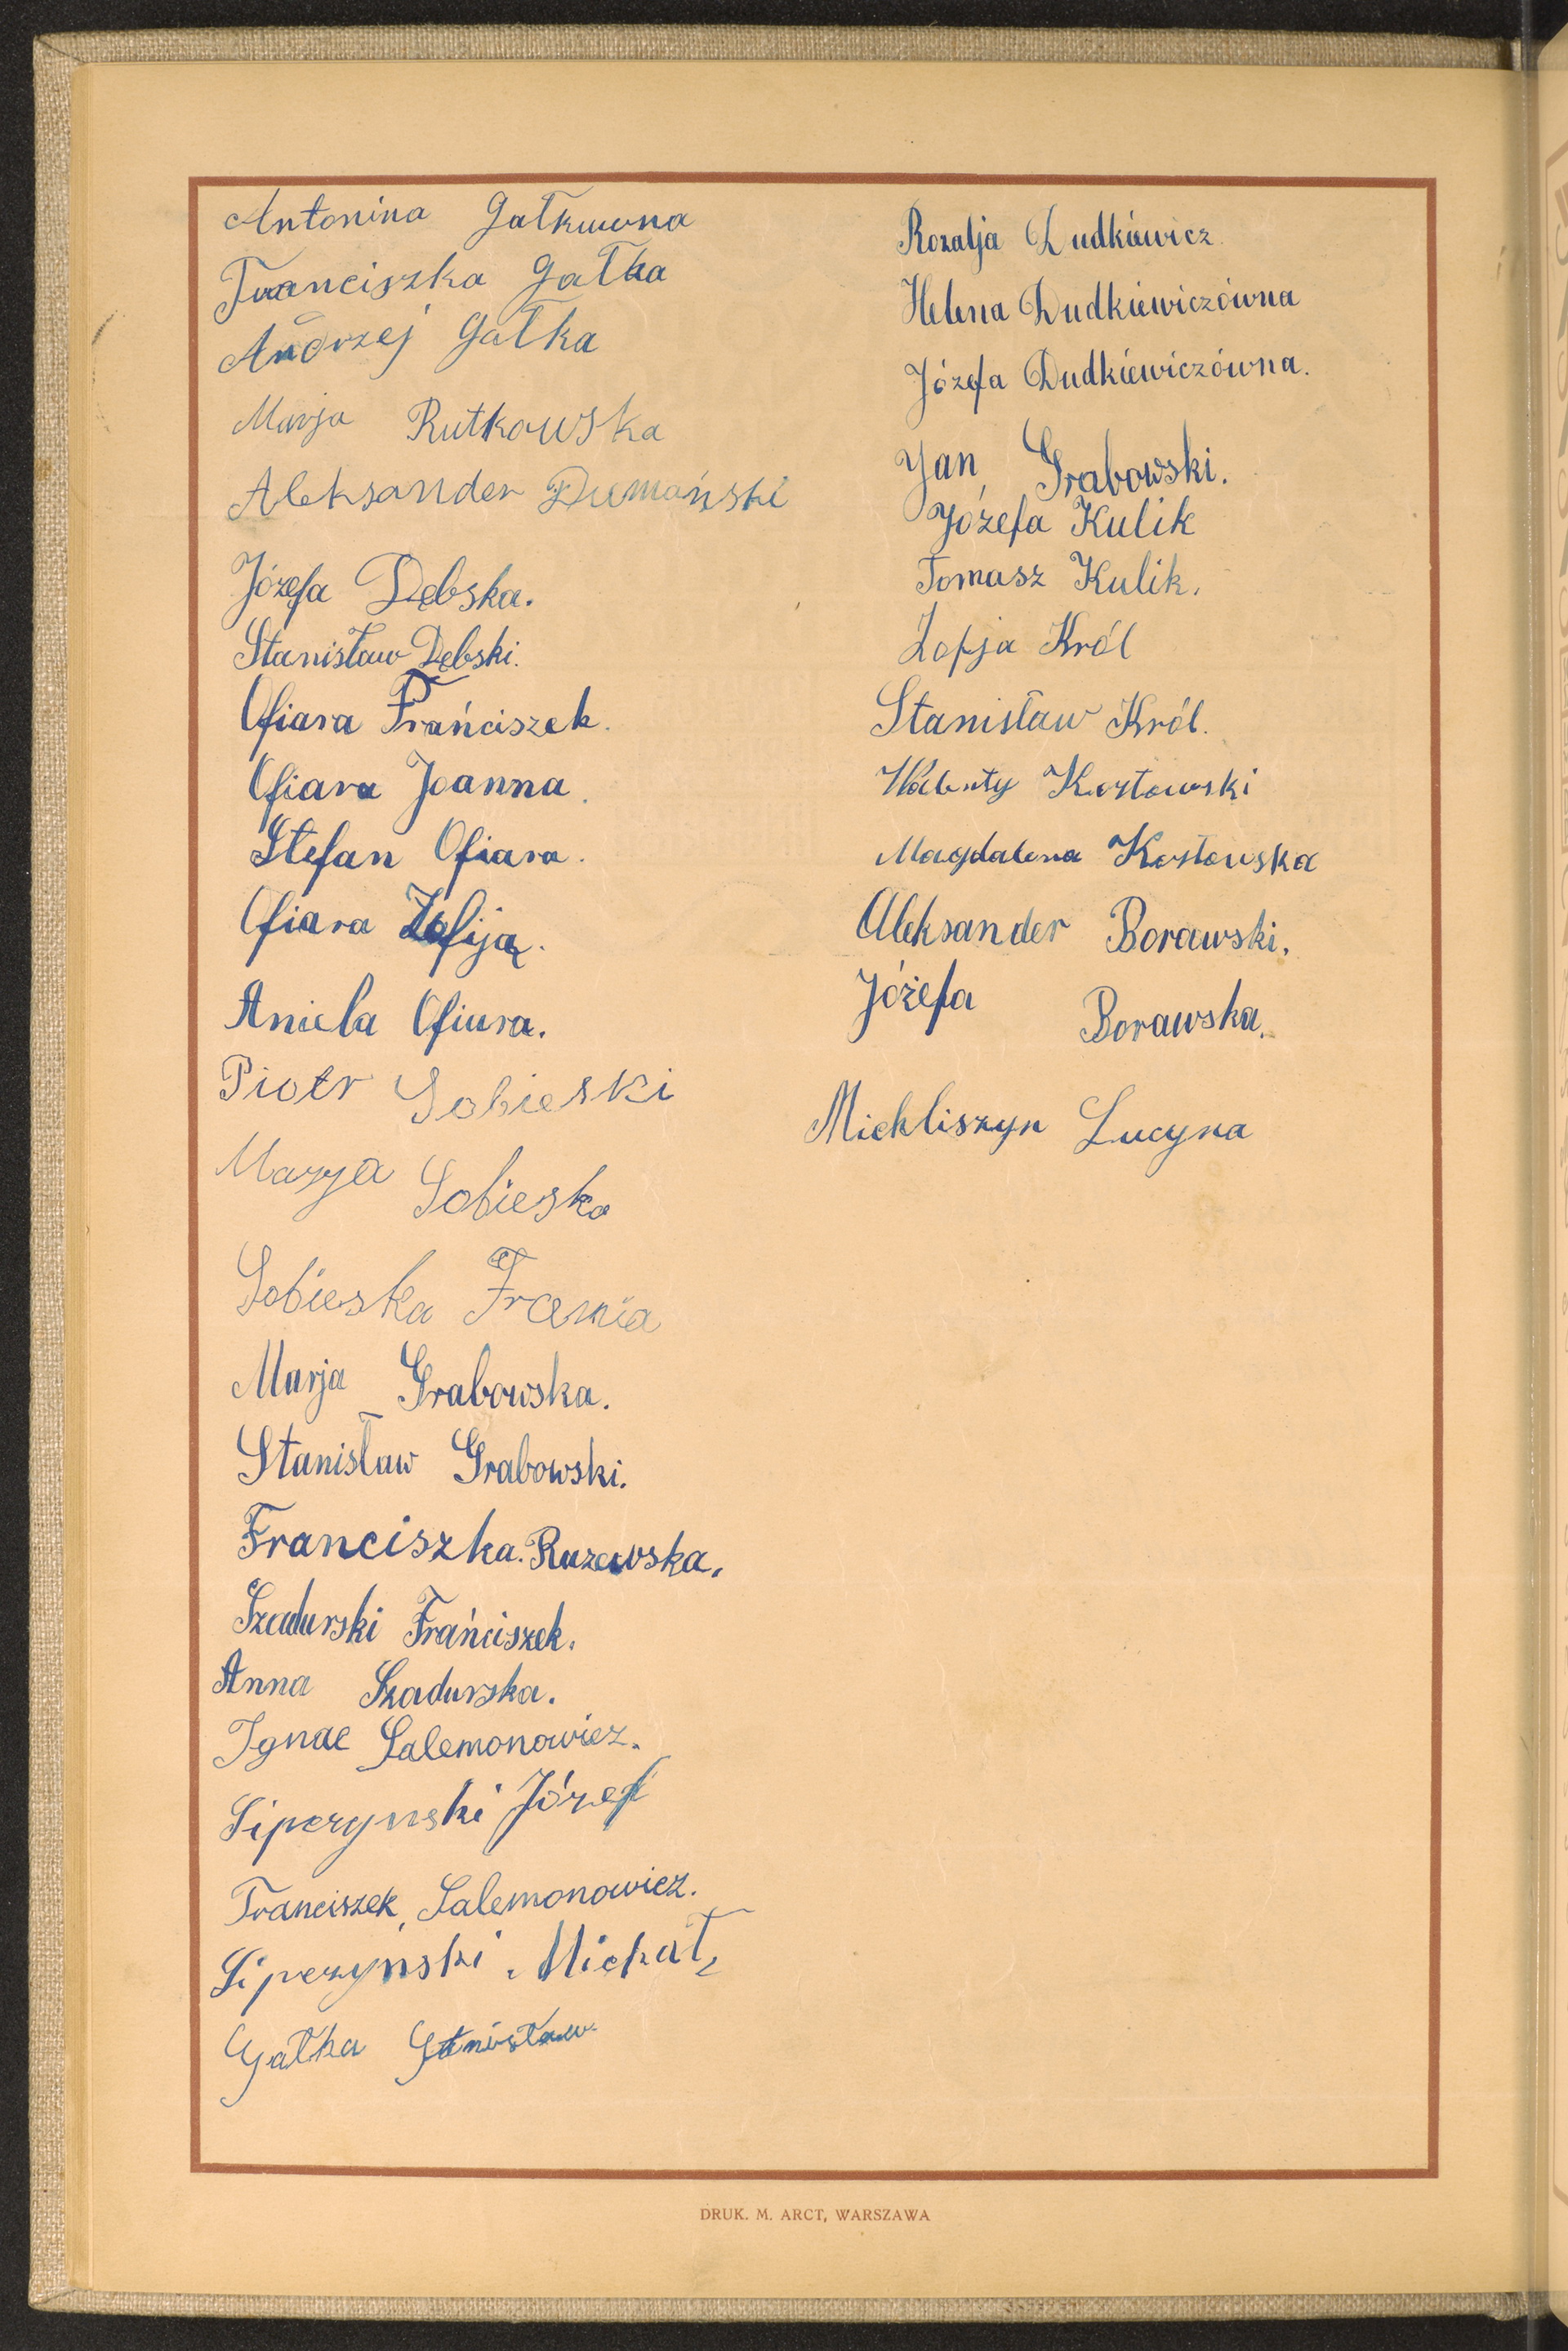 Antonina Gałkuwna
Franciszka Gałka
Andrzej Gałka
Marja Rutkowska
Aleksander Dumański
Józefa Dębska.
Stanisław Dębski.
Ofiara Frańciszek.
Ofiara Joanna.
Stefan Ofiara.
Ofiara Zofiją.
Aniela Ofiara.
Piotr Sobieski
Marya Sobieska
Sobieska Frania
Marja Grabowska.
Stanisław Grabowski.
Franciszka. Ruzewska.
Szadurski Frańciszek.
Anna Szadurska.
Ignac Salemonowicz.
Lipczynski Józef
Franciszek, Salemonowicz.
Lipczyński Michał,
Gałka Stanisław
Rozalja Dudkiewicz.
Helena Dudkiewiczówna
Józefa Dudkiewiczówna.
Jan, Grabowski.
Józefa Kulik
Tomasz Kulik.
Zofja Król
Stanisław Król.
Walenty Kostowski
Magdalena Kostowska
Aleksander Borawski.
Józefa Borawska.
Michliszyn Lucyna
DRUK. M. ARCT, WARSZAWA